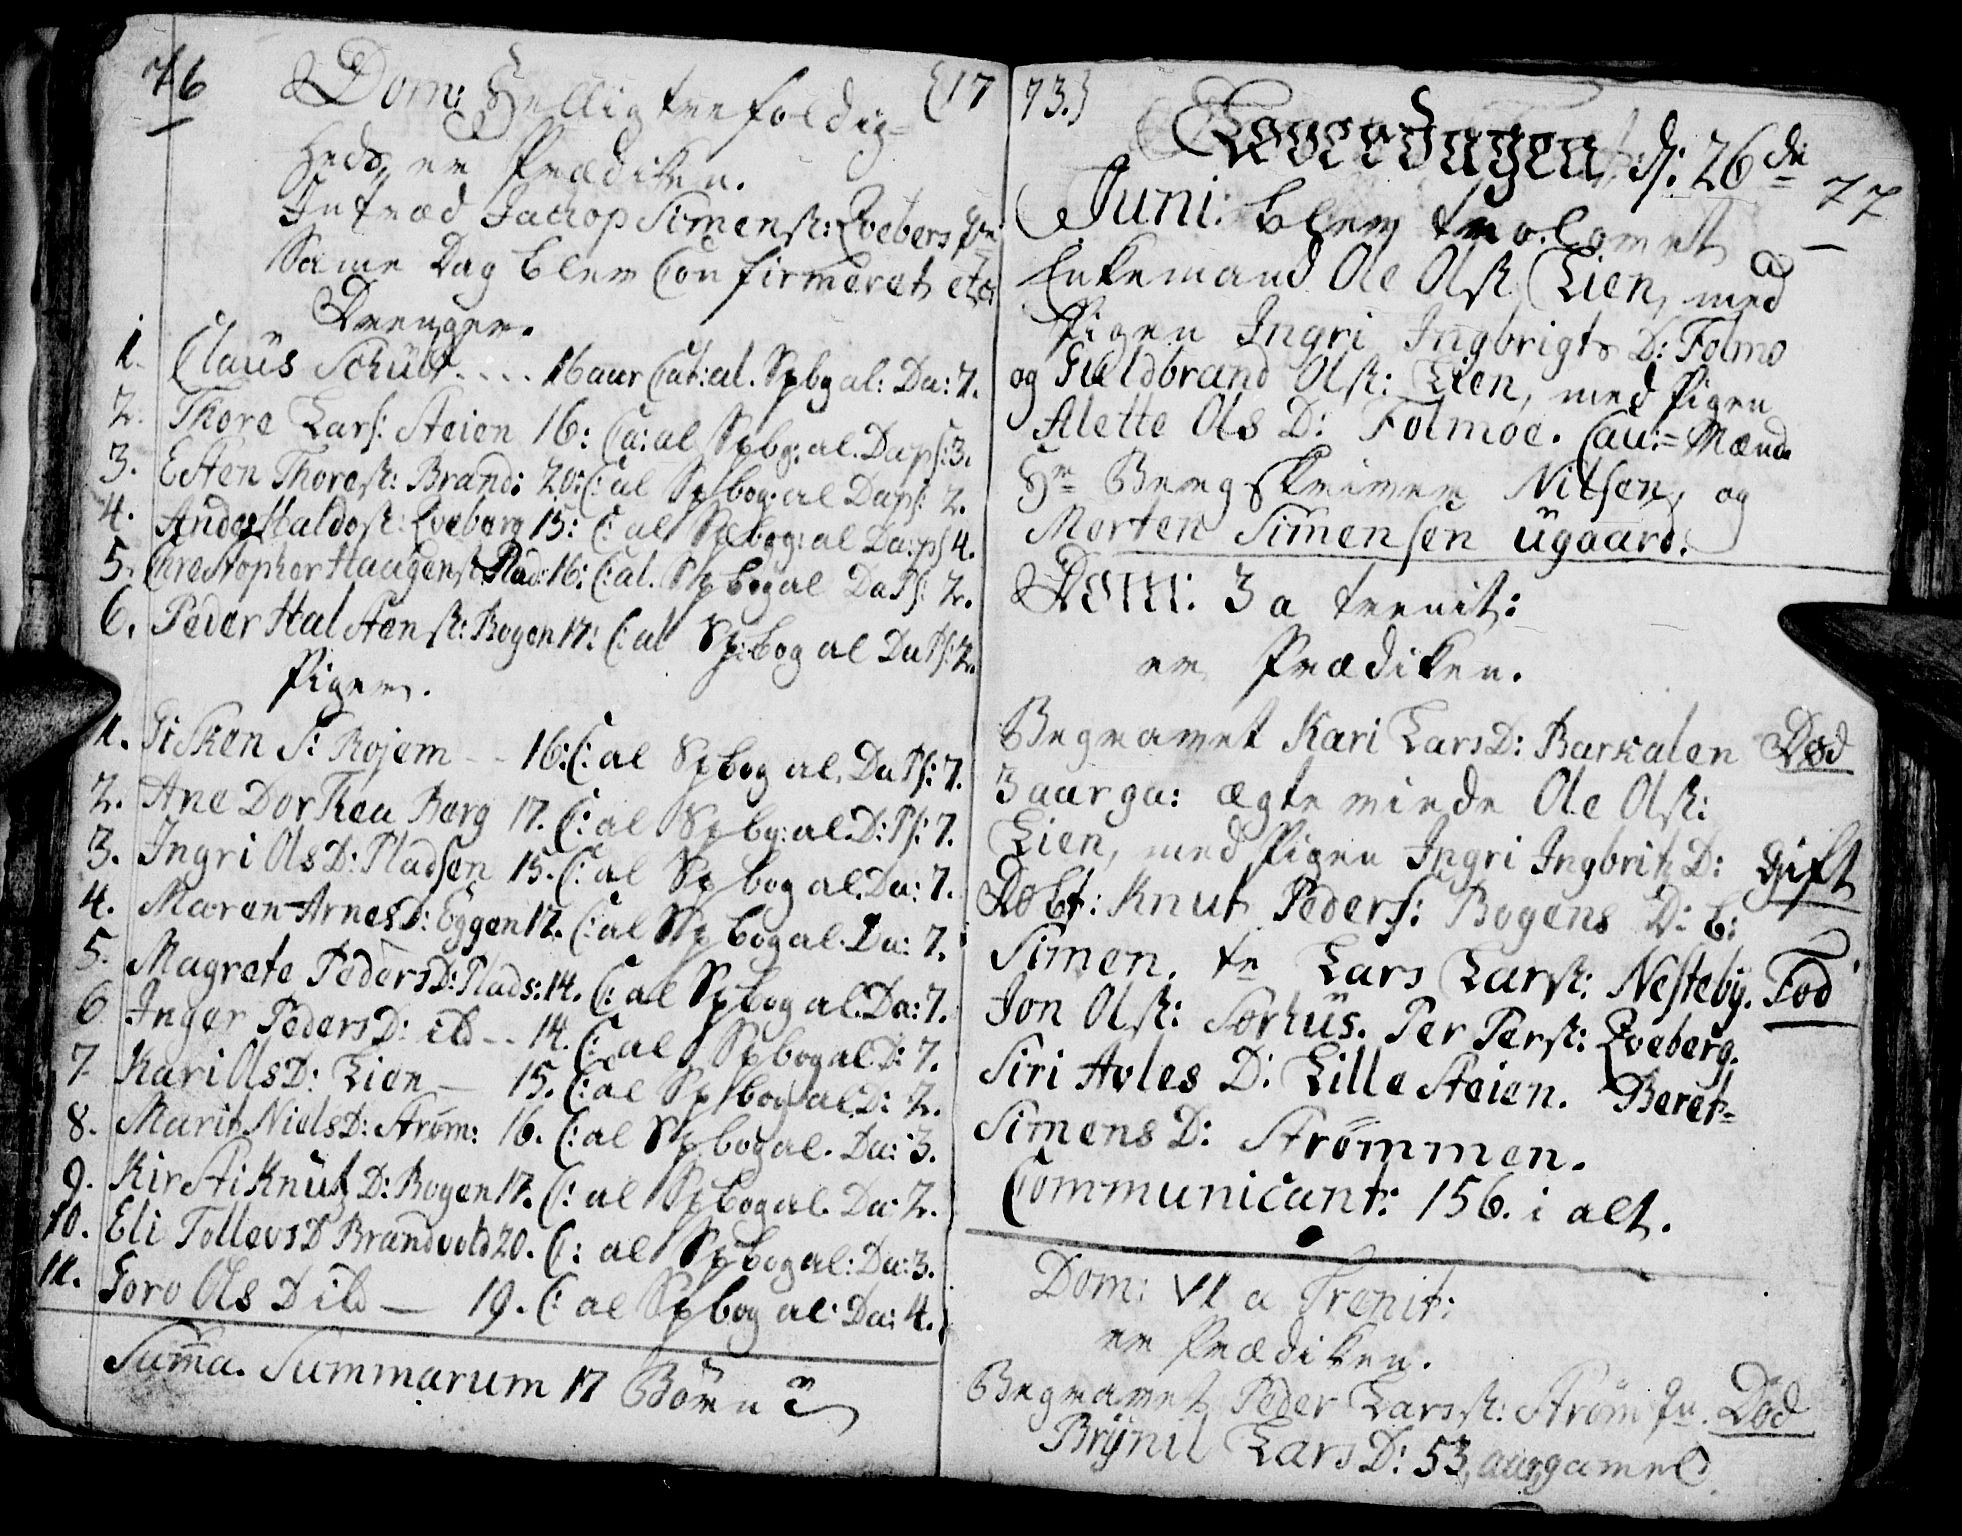 76
{17
Dom: Helligtrefoldig=
heds, er Prædiken.
Introd Jacop Simensøn: Qvebers qv:
Same Dag blev Confirmeret
Drenger.
1. Claus Schült .... 16 aar Cat: al. Spbog al: Da: 7.
2. Thore Lars: Steien 16: Ca: al Spbog: al. Da ps: 3.
3. Esten Thoresøn: Brand: 20: C: al Spbog: al Daps: 2.
4. Anders Haldosøn: Qveberg 15: C: al Spbog: al Da: ps 4.
5. Christopher Haagensøn Plad: 16: C: al. Spbog al Da Ps: 2.
6. Peder Halstensøn: Bogen 17: C: al Spbog al Da Ps: 2.
Piger.
1. Gisken S: Rojem - - 16: C: al Spbog al. Da Ps: 7.
2. Ane Dorthea Berg 17. C: al Spbg: al. D: Ps: 7.
3. Ingri Ols D: Pladsen 15. C: al Spbog al. Da: 7.
4. Maren Arnes D: Eggen 17. C: al Spbog al. Da: 7.
5. Magrete Peders D: Plads: 14. C: al Spbog al. Da: 7.
6 Inger Peders D: ibd - - 14. C: al Spbog al. D: 7.
7 Kari Ols D: Lien — 15. C: al Spbog al. D: 2.
8. Marit Niels D: Strøm: 16. C: al Spbog al. Da: 3.
9. Kirsti Knutz D: Bogen 17. C: al Spbog al. Da: 2.
10. Eli Tollevs D Brandvold 20. C: al Spbog al: Da: 3.
11. Goro Ols D ibd — 19. C: al Spbog al: Da: 4.
Suma. Summarum 17 Börn
73.}
77
Löverdagen d: 26 de
Juni: blev trolovet
Enkemand Ole Olsøn Lien, med
Pigen Ingri Ingbrigts D: Folmo
og Guldbrand Olsøn: Lien, med Pigen
Alette Ols D: Folmoe. Cau:= Mænd
Hr Bergskriver Nilsen, og
Morten Simensen ügaard.
Dom: 3 a trenit:
er Prædiken.
Begravet Kari Lars D: Barkalen Død
3 aar ga: ægte viede Ole Olsøn:
Lien, med Pigen Ingri Ingbritz D: Gift
Döbt: Knut Peders: Bogens D: b:
Simen. tn Lars Larsøn: Nesteby. Fød
Jon Olsøn: Sorhüs. Per Persøn: Qveberg.
Siri Avles D: Lille Steien. Beret
Simens D: Strømmen.
Communicant: 156. i alt.
Dom: VI a Trenit:
er Prædiken.
Begravet Peder Larssøn: Strøm Død
Brÿnil Lars D: 53, aar gamel.